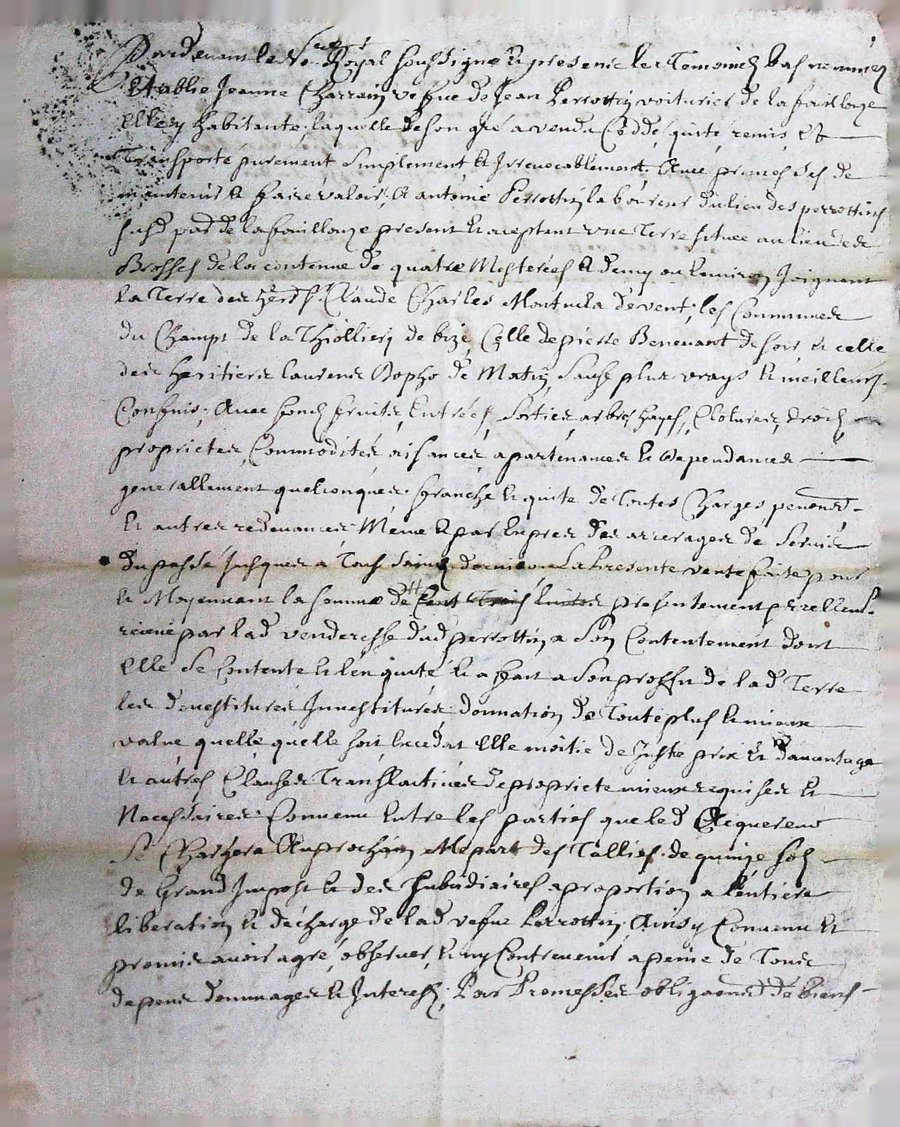 Pardevant le No.re Royal soussigné et présents les Temoins bas nommés
Establie Jeanne Charrain vefue de Jean Perrottin voiturier de la fouillouze
elle y habitante laquelle de son gré a vendu Ceddé, quité remis et
Transporté purement simplement et Irrevocablement. Avec promesses de
maintenir et faire valoir, A antoine Perrottin laboureur du lieu des perrottins
susd par de la fouillouze present et aceptant une Terre située au lieu des
Brosses de la contenue de quatre Mesterées et demy ou Environ Joignant
La Terre des hers Claude Charles Montula de vent; les Communes
du Champs de la Thiolliery de bize, Celle de pierre Benevant de soir et celle
des heritiers laurens Bopho de Matin sauf plus vrays et meilleurs
Confins; Avec fonds fruits, Entrées, Sorties arbres hayes, Clotures, droits
proprietes, Commodités, aisances apartenances et Dependances
generallement quelconques. franche et quite de Toutes Charges pensions
et autres redevances, Meme et par Exprés des arrerages de Servis
du passé Jusques a Toussaints dernier La Presente vente faite pour
et Moyennant la somme de Cent Trois livres presentement reellem.
receue par lad venderesse dud perrottin a son Contentement dont
Elle se Contente et l'en quite et a fait a son proffit de lad Terre
les devestitures Investitures donnation de Toute plus et mieux
value quelle quelle soit Excedat Elle moitié de Juste prix et davantage
et autres Clauses Translatives de proprieté mieux requises et
Necessaires. Convenu Entre les parties que led Acquereur
se Chargera Auprochain Mepart des Tallies de quinze sols
de Grand Impost et des subsidiaires a proportion a l'entiere
liberation et decharge de lad vefue Perrottin, Ainsy Convenu et
promis avoir agré, observer, et ny Contrevenir a peine de Tous
depens dommages et Interests, Par Promesses obligaons de biens